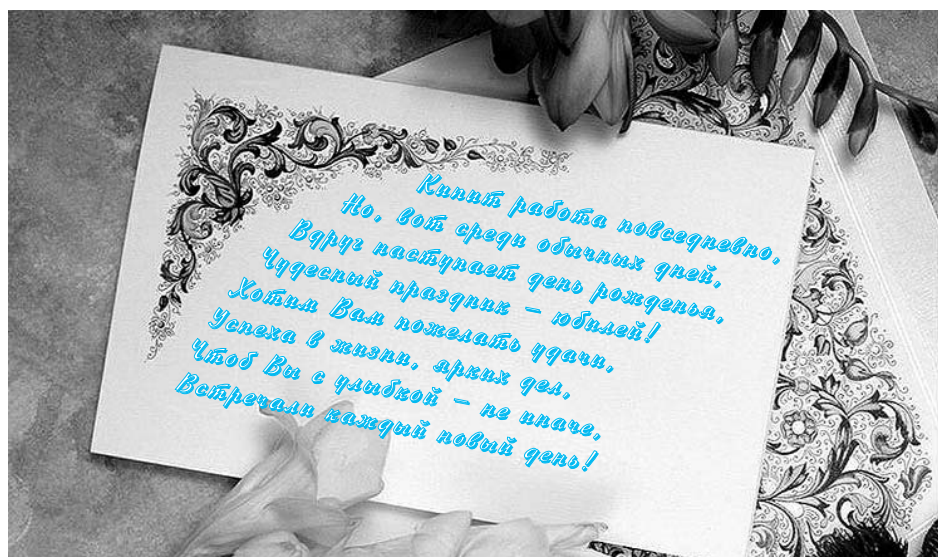 Кипит работа повседневно,
Но, вот среди обычных дней,
Вдруг наступает день рожденья,
Чудесный праздник – юбилей!
Хотим Вам пожелать удачи,
Успеха в жизни, ярких дел,
Чтоб Вы с улыбкой – не иначе,
Встречали каждый новый день!